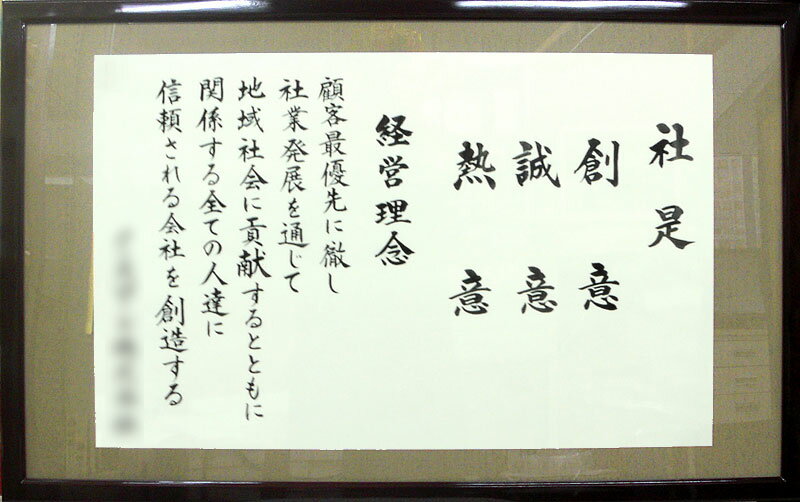 社是
創意
誠意
熱意
経営理念
顧客最優先に徹し
社業発展を通じて
地域社会に貢献するとともに
関係する全ての人達に
信頼される会社を創造する